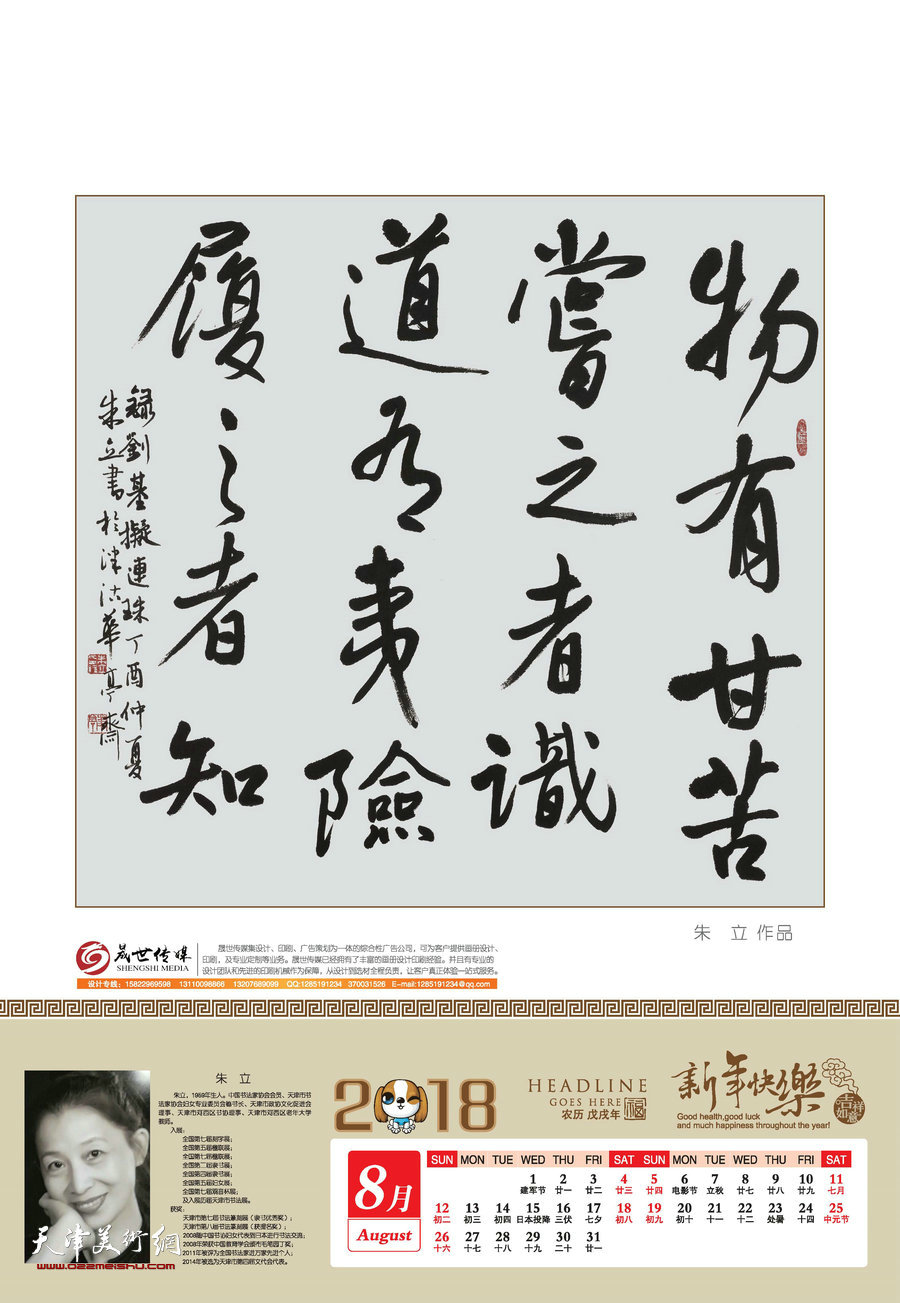 物有甘苦
嘗之者識
道有夷險
履之者知
錄劉基擬連珠丁酉仲夏
朱立書於津沽華亭齋
朱 立 作品
晟世传媒
SHENGSHI MEDIA
晟世传媒集设计、印刷、广告策划为一体的综合性广告公司，可为客户提供画册设计、
印刷，及专业定制等业务。晟世传媒已经拥有了丰富的画册设计印刷经验。并且有专业的
设计团队和先进的印刷机械作为保障，从设计到选材全程负责，让客户真正体验一站式服务。
设计专线：15822969598 13110098866 13207689099 QQ:1285191234 370031526 E-mail:1285191234@qq.com
朱 立
朱立，1969年生人。中国书法家协会会员、天津市书
法家协会妇女专业委员会秘书长、天津市政协文化促进会
理事、天津市河西区书协理事、天津市河西区老年大学
教师。
入展：
全国第七届刻字展；
全国第五届楹联展；
全国第七届楹联展；
全国第二届隶书展；
全国第四届隶书展；
全国第五届妇女展；
全国第七届观音杯展；
及入展历届天津市书法展。
获奖：
天津市第七届书法篆刻展（隶书优秀奖）；
天津市第八届书法篆刻展（获提名奖）；
2008随中国书协妇女代表团日本进行书法交流；
2008年荣获中国教育学会颁布毛笔园丁奖；
2011年被评为全国书法家进万家先进个人；
2014年被选为天津市第四届文代会代表。
天津美術網
www.022meishu.com
2018
HEADLINE
GOES HERE
农历 戊戌年
福
新年快樂
吉祥如意
Good health,good luck
and much happiness throughout the year!
8月
August
SUN MON TUE WED THU FRI SAT SUN MON TUE WED THU FRI SAT
1 2 3 4 5 6 7 8 9 10 11
建军节 廿一 廿二 廿三 廿四 电影节 立秋 廿七 廿八 廿九 七月
12 13 14 15 16 17 18 19 20 21 22 23 24 25
初二 初三 初四 日本投降 三伏 七夕 初八 初九 初十 十一 十二 处暑 十四 中元节
26 27 28 29 30 31
十六 十七 十八 十九 二十 廿一